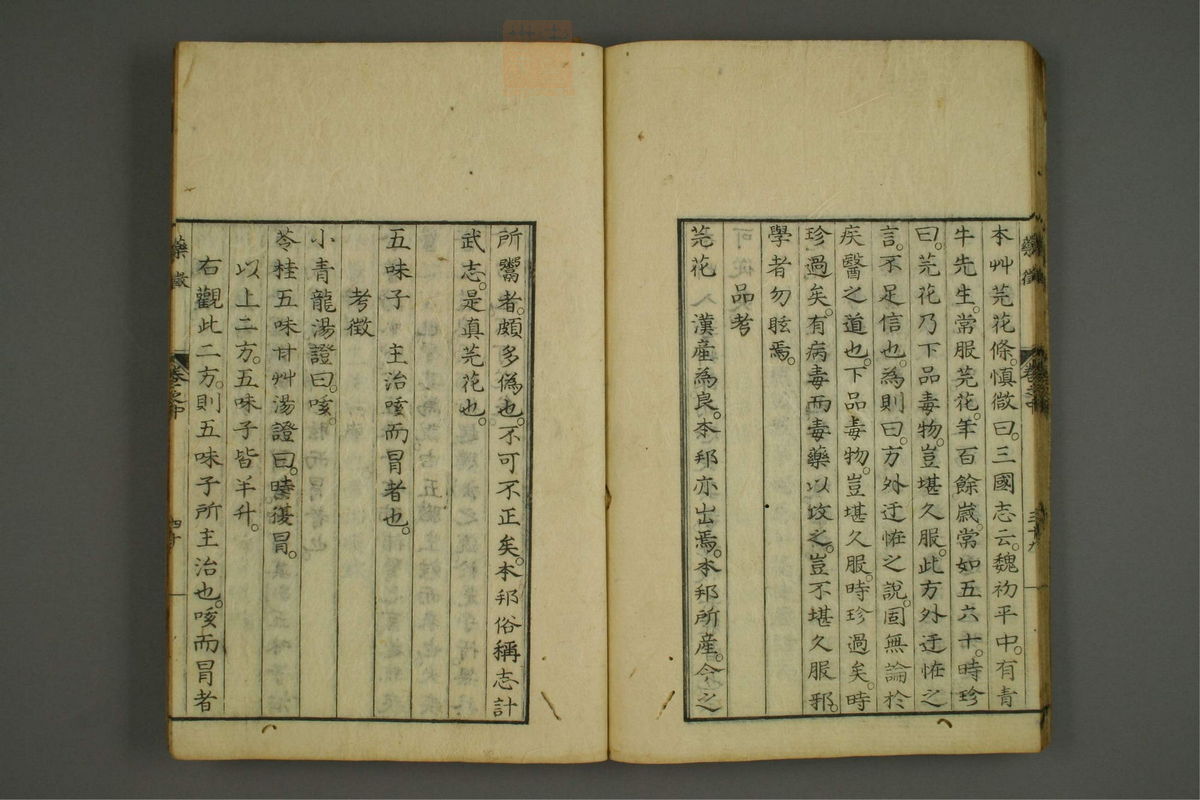 本艸芫花條。慎微曰。三國志云。魏初平中。有青
牛先生。常服芫花。年百餘歲。常如五六十。時珍
曰。芫花乃下品毒物。豈堪久服。此方外迂恠之
言。不足信也。為則曰。方外迂恠之說。固無論於
疾醫之道也。下品毒物。豈堪久服。時珍過矣。時
珍過矣。有病毒而毒藥以攻之。豈不堪久服邪。
學者勿眩焉。
品考
芫花 漢產為良。本邦亦出焉。本邦所產。今之
藥徵
卷之中
三十九
所鬻者。頗多偽也。不可不正矣。本邦俗稱志計
武志。是真芫花也。
五味子 主治咳而冒者也。
考徵
小青龍湯證曰。咳。
苓桂五味甘艸湯證曰。咳。後冒。
以上二方。五味子皆半升。
右觀此二方。則五味子所主治也。咳而冒者
藥徵
卷之中
四十